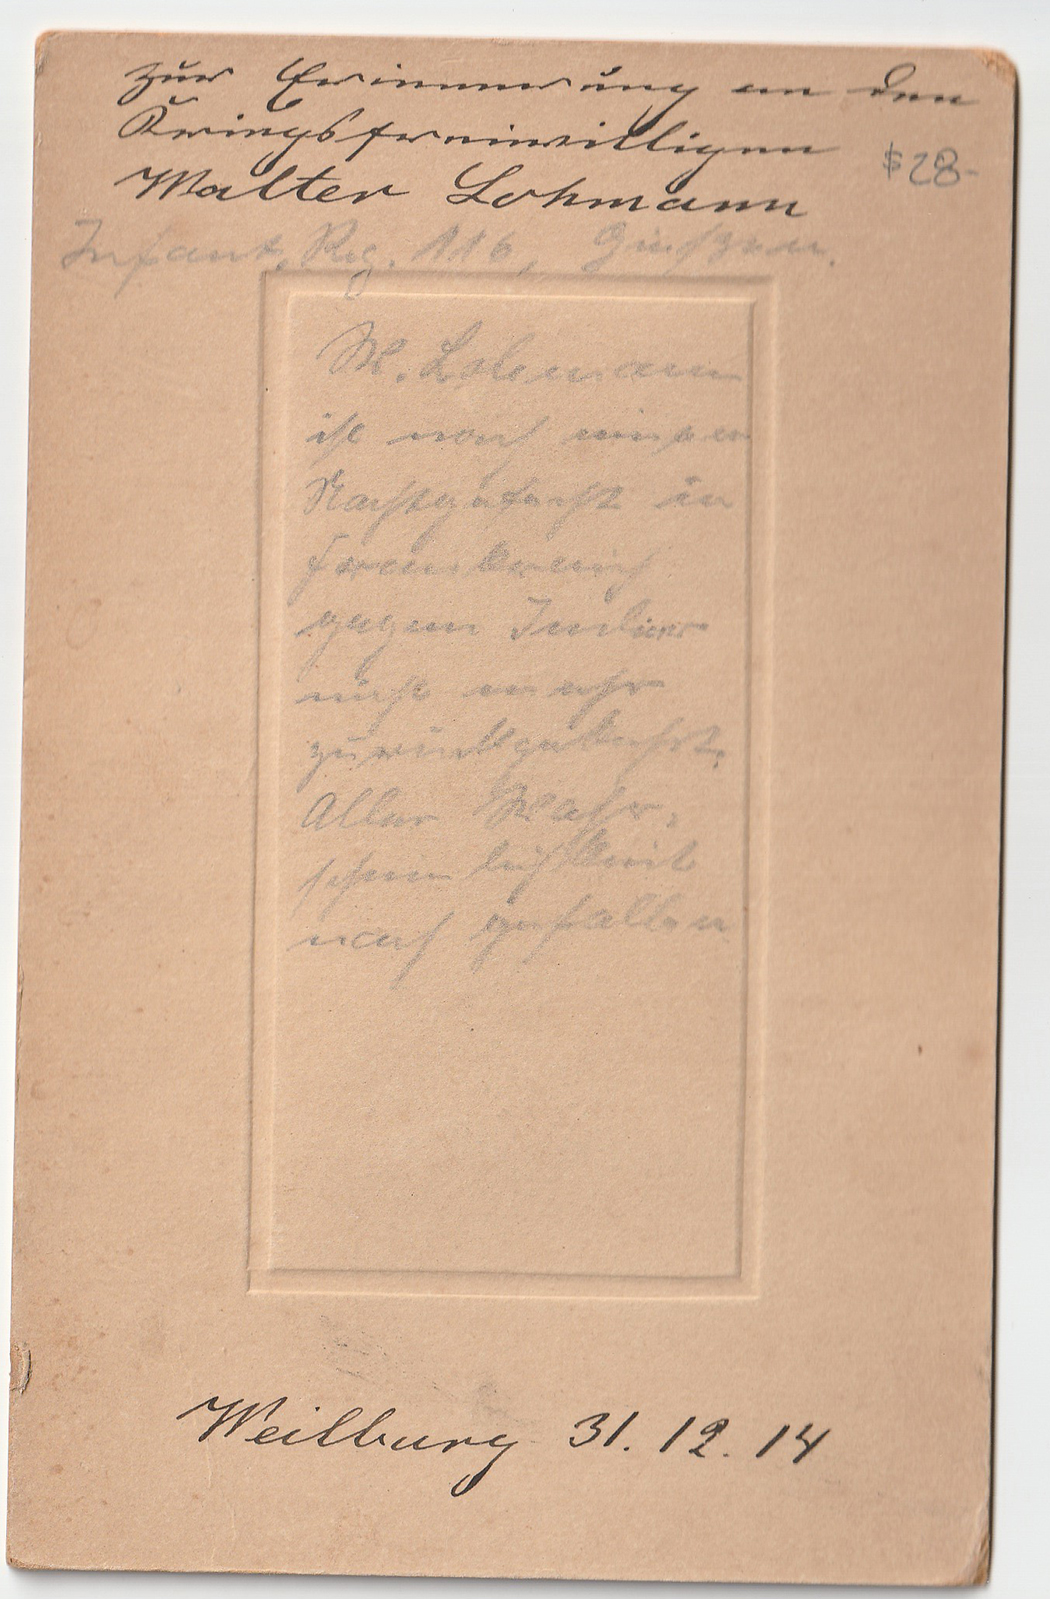 zur Erinnerung an den
Kriegsfreiwilligen
Walter Lohmann
$28-
Infant. Reg. 116, Giessen.
W. Lohmann
ist nach einem
Nachtgefecht in
Frankreich
gegen Indier
nicht mehr
zurückgekehrt.
Aller Wahr-
scheinlichkeit
nach gefallen
Weilburg 31.12.14